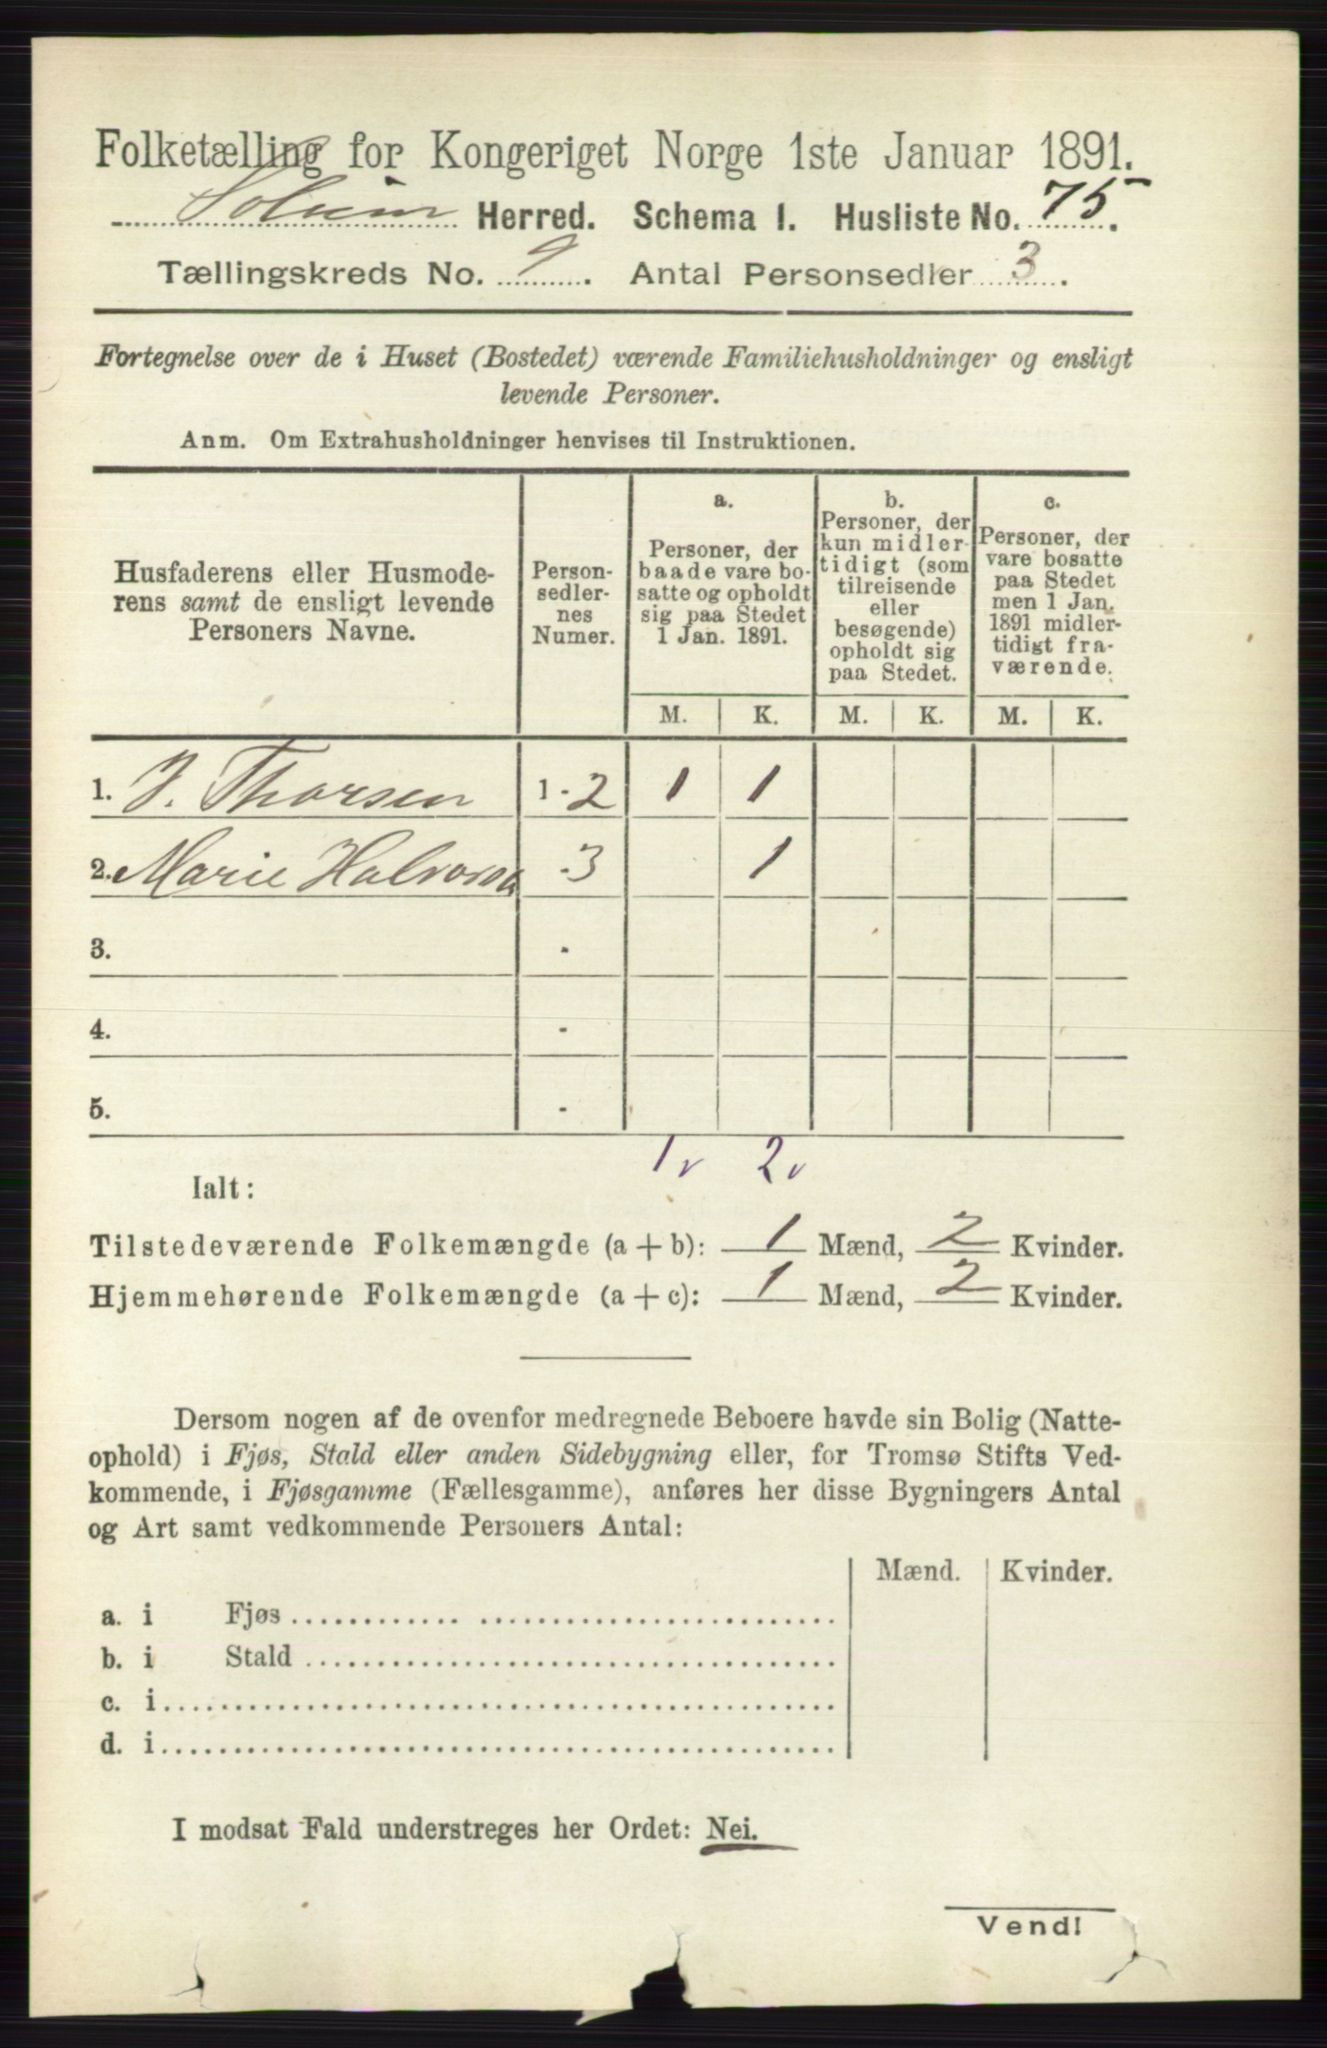 Folketælling for Kongeriget Norge 1ste Januar 1891.
Solum Herred. Schema 1. Husliste No. 75.
Tællingskreds No. 9. Antal Personsedler 3.
Fortegnelse over de i Huset (Bostedet) værende Familiehusholdninger og ensligt
levende Personer.
Anm. Om Extrahusholdninger henvises til Instruktionen.
Husfaderens eller Husmode-
rens samt de ensligt levende
Personers Navne.
Person-
sedler-
nes
Numer.
a.
Personer, der
baade vare bo-
satte og opholdt
sig paa Stedet
1 Jan. 1891.
b.
Personer, der
kun midler-
tidigt (som
tilreisende
eller
besøgende)
opholdt sig
paa Stedet.
c.
Personer, der
vare bosatte
paa Stedet
men 1 Jan.
1891 midler-
tidigt fra-
værende.
M. K. M. K. M. K.
1. J. Thorsen 1 - 2 1 1
2. Marie Halvorsen - 3 1
3. -
4. -
5. -
1 v 2 v
Ialt:
Tilstedeværende Folkemængde (a + b): 1 Mænd, 2 Kvinder.
Hjemmehørende Folkemængde (a + c): 1 Mænd, 2 Kvinder.
Dersom nogen af de ovenfor medregnede Beboere havde sin Bolig (Natte-
ophold) i Fjøs, Stald eller anden Sidebygning eller, for Tromsø Stifts Ved-
kommende, i Fjøsgamme (Fællesgamme), anføres her disse Bygningers Antal
og Art samt vedkommende Personers Antal:
Mænd. Kvinder.
a. i Fjøs
b. i Stald
c. i
d. i
I modsat Fald understreges her Ordet: Nei.
Vend!